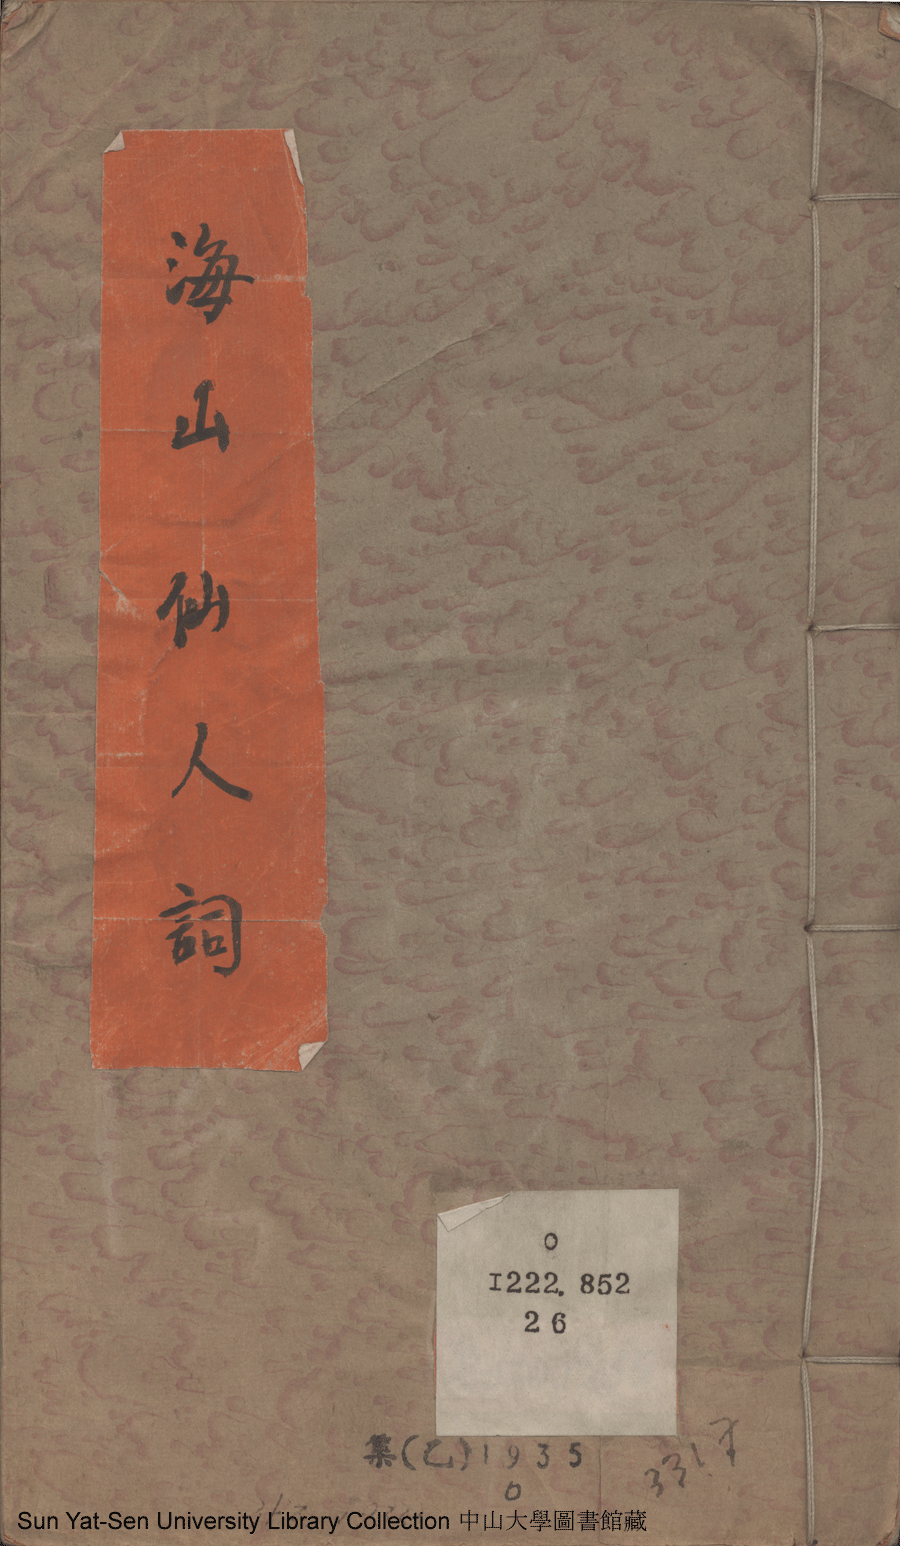 海山仙人詞
0
I222.852
26
集(乙)1935
0
Sun Yat-Sen University Library Collection 中山大學圖書館藏